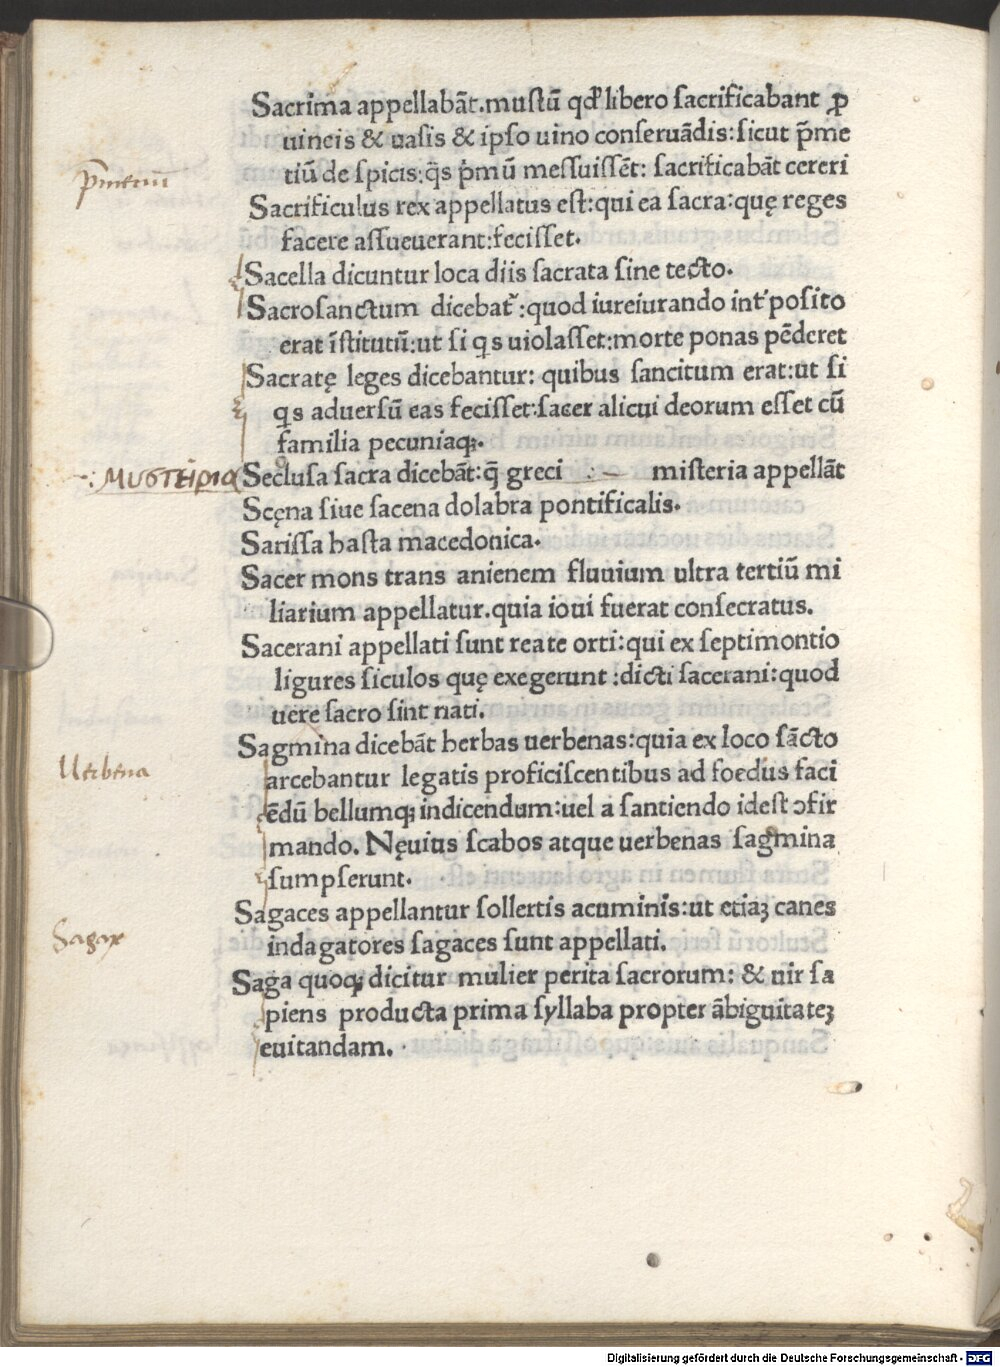 Sacrima appellabāt.mustū qđ libero sacrificabant ꝓ
uineis & uasis & ipso uino conseruādis:sicut p̄me
p̄metiū
tiū de spicis:q̄s pͥmū messuissēt: sacrificabāt cereri
Sacrificulus rex appellatus est:qui ea sacra:quę reges
facere assueuerant:fecisset.
Sacella dicuntur loca diis sacrata sine tecto.
Sacrosanctum dicebat᷑:quod iureiurando int'posito
erat īstitutū:ut si qͥs uiolasset:morte pœnas pēderet
Sacratę leges dicebantur: quibus sancitum erat:ut si
qͥs aduersū eas fecisset:sacer alicui deorum esset cū
familia pecuniaqꝫ.
μυστήρια
Seclusa sacra dicebāt:q̄ greci misteria appellāt
Scęna siue sacena dolabra pontificalis.
Sarissa hasta macedonica.
Sacer mons trans anienem fluuium ultra tertiū mi
liarium appellatur.quia ioui fuerat consecratus.
Sacerani appellati sunt reate orti:qui ex septimontio
ligures siculos quę exegerunt:dicti sacerani:quod
uere sacro sint nati.
Sagmina dicebāt herbas uerbenas:quia ex loco sācto
Uerbena
arcebantur legatis proficiscentibus ad foedus faci
ēdū bellumqꝫ indicendum:uel a santiendo idest ↄfir
mando. Nęuius scabos atque uerbenas sagmina
sumpserunt.
Sagaces appellantur sollertis acuminis:ut etiaꝫ canes
Sagax
indagatores sagaces sunt appellati.
Saga quoqꝫ dicitur mulier perita sacrorum: & uir sa
piens producta prima syllaba propter ābiguitateꝫ
euitandam.
Digitalisierung gefördert durch die Deutsche Forschungsgemeinschaft - DFG